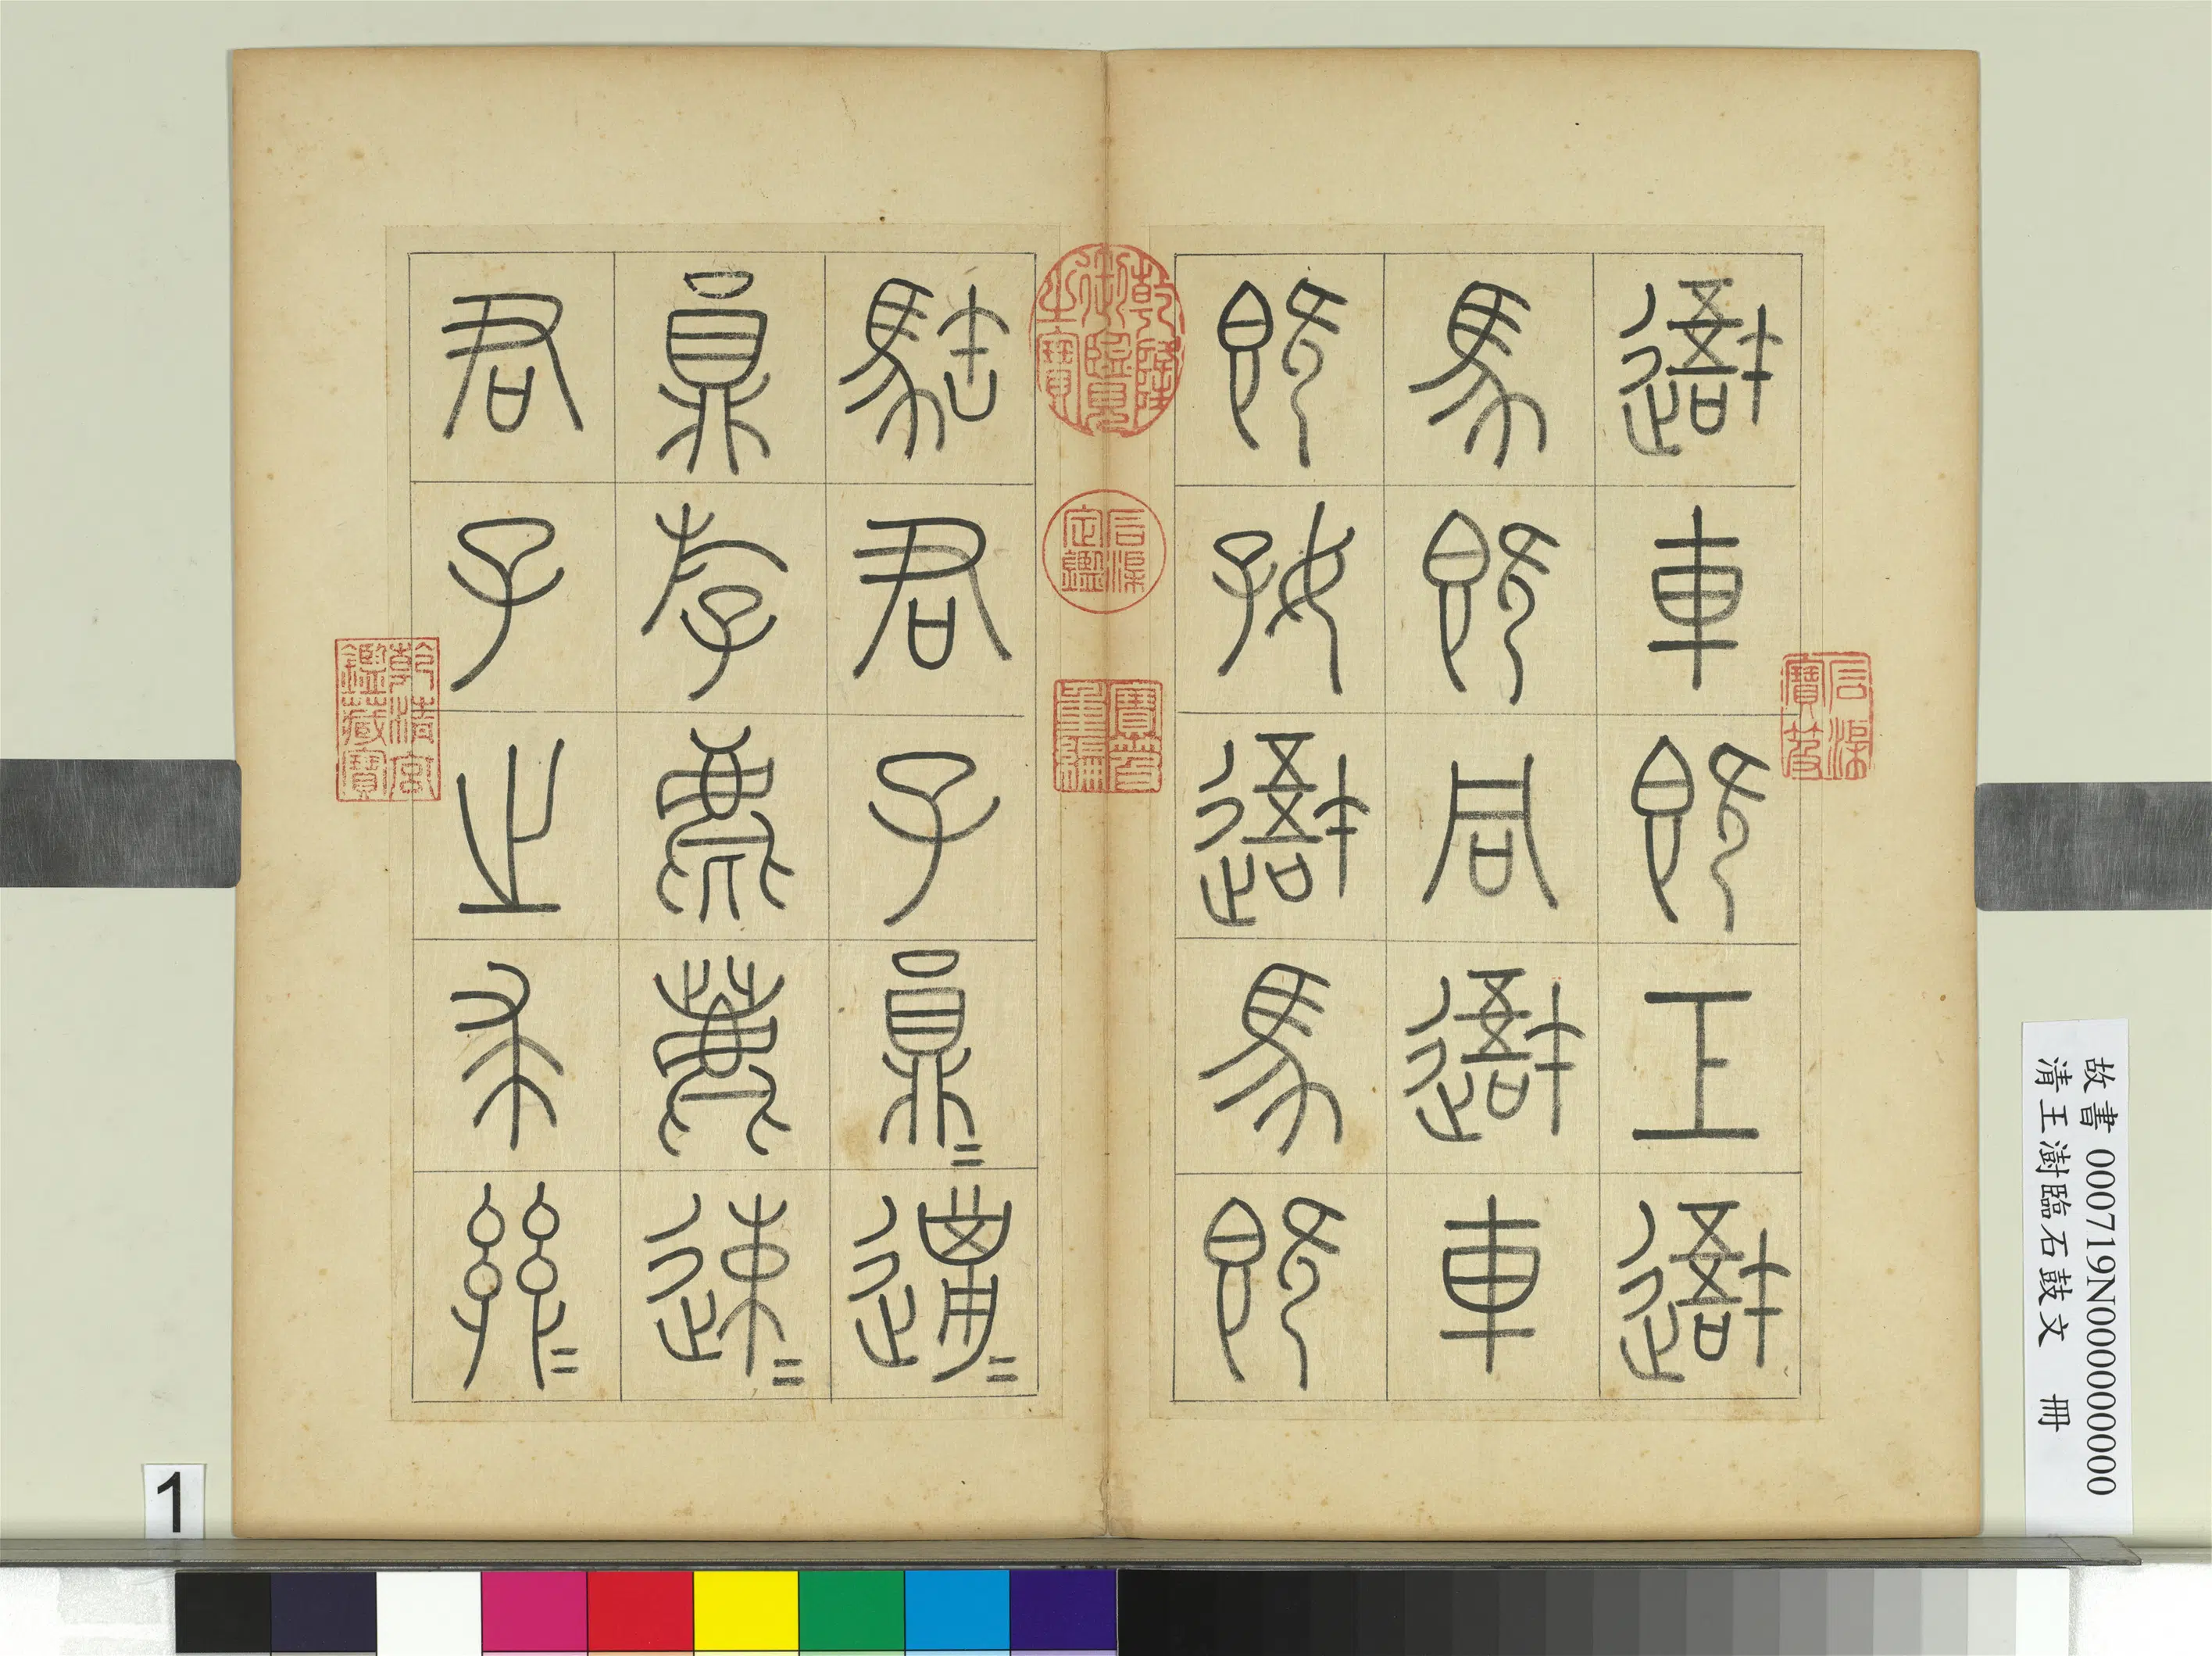 遊車既工遊
馬既同遊車
既好遊馬既
駐君子員=邋=
員斿麀鹿速=
君子之求𢆶=
乾隆御覽之寶
石渠定鑑
寶笈重編
石渠寶笈
乾清宮鑑藏寶
故書 000719N000000000
清王澍臨石鼓文 冊
1